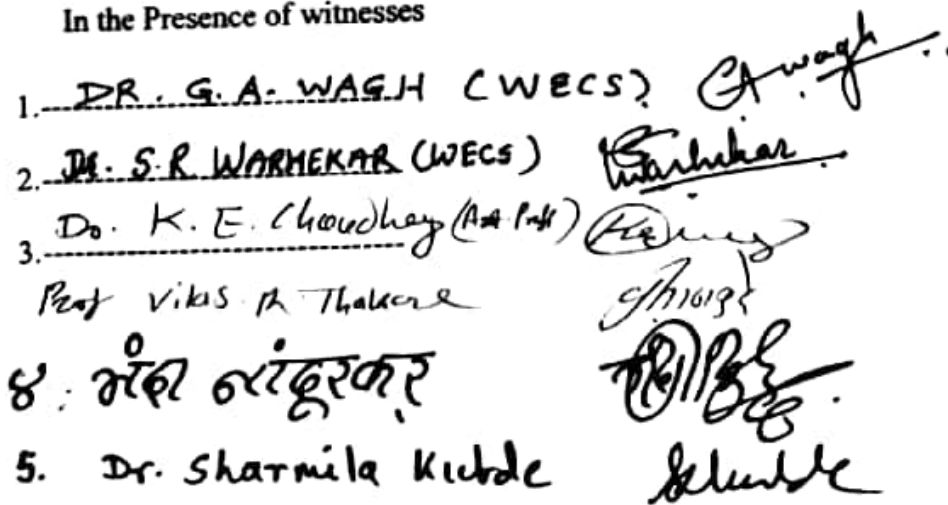 In the Presence of witnesses
1. DR. G. A. WAGH (WECS) GAwagh
2. DR. S.R WARHEKAR (WECS) Warhekar
3. Dr. K. E. Choudhary
Prof Vikas R Thakare
४. नांदूरकर
5. Dr. Sharmila Kubde SKubde